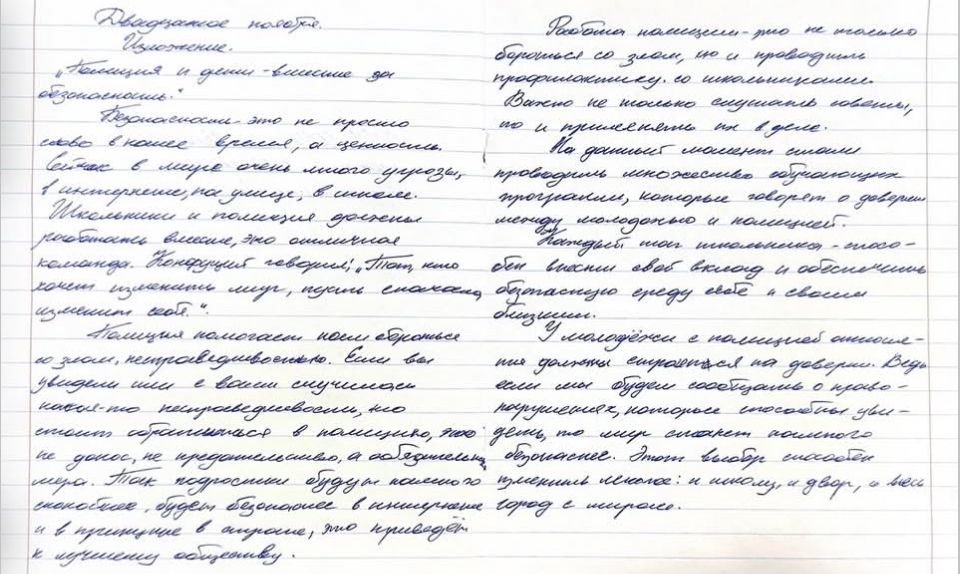 Двадцатое ноября.
Изложение.
„Полиция и дети - вместе за
безопасность."
Безопасность - это не просто
слово в наше время, а ценность.
Сейчас в мире очень много угрозы,
в интернете, на улице, в школе.
Школьники и полиция должны
работать вместе, это отличная
команда. Конфуций говорил; „Тот, кто
хочет изменить мир, пусть сначала
изменит себя.".
Полиция помогает нам бороться
со злом, несправедливостью. Если вы
увидели или с вами случилась
какая-то несправедливость, то
стоит обратиться в полицию, это
не донос, не предательство, а обязательная
мера. Так подростки будут намного
спокойнее, будет безопаснее в интернете
и в принципе в стране, это приведёт
к лучшему обществу.
Работа полиции - это не только
бороться со злом, но и проводить
профилактику со школьниками.
Важно не только слушать советы,
но и применять их в деле.
На данный момент стали
проводить множество обучающих
программ, которые говорят о доверии
между молодёжью и полицией.
Каждый шаг школьника - спосо-
бен внести свой вклад и обеспечить
безопасную среду себе и своим
близким.
У молодёжи с полицией отноше-
ния должны строиться на доверии. Ведь
если мы будем сообщать о право-
нарушениях, которые способны уви-
деть, то мир станет намного
безопаснее. Этот выбор способен
изменить многое: и школу, и двор, и весь
город с миром.